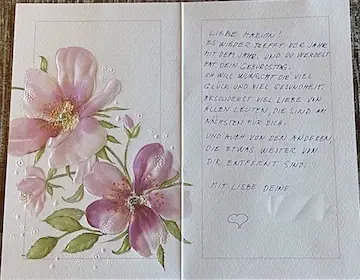 LIEBE MARION!
ES WIEDER TREFFT DER JAHR
MIT DEM JAHR, UND DU WERDEST
HAT DEIN GEBURTSTAG.
ICH WILL WÜNSCHT DIR VIEL
GLÜCK UND VIEL GESUNDHEIT.
BESONDERST VIEL LIEBE VON
ALLEN LEUTEN, DIE SIND AM
NÄCHSTEN FÜR DICH.
UND AUCH VON DEN ANDEREN,
DIE ETWAS WEITER VON
DIR ENTFERNT SIND.
MIT LIEBE DEINE